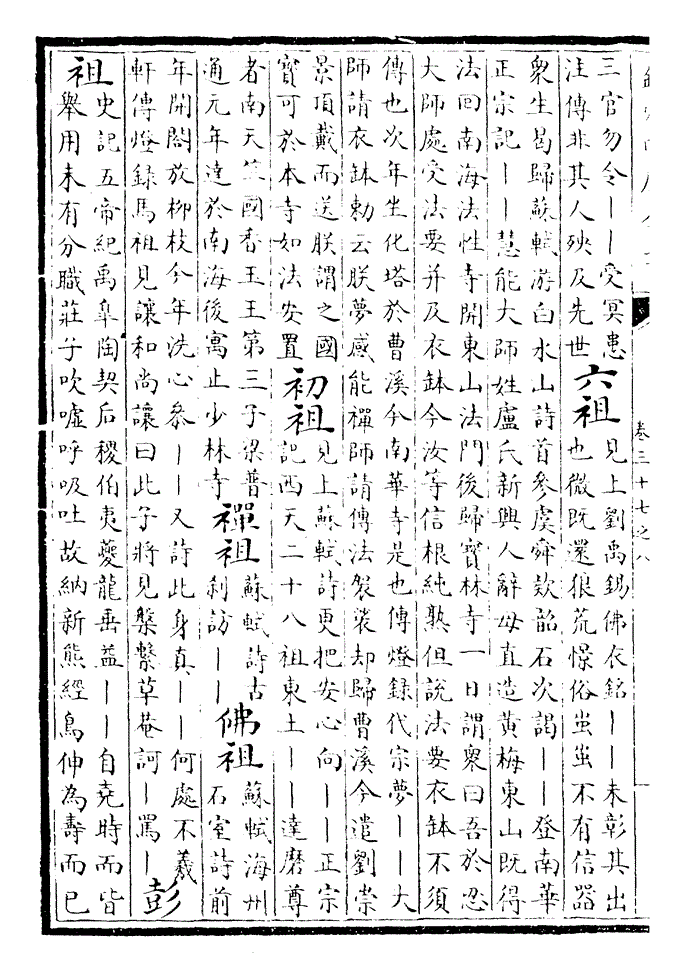 卷三十七之八
三官勿令｜｜受冥患
注傳非其人殃及先世
六祖
見上劉禹錫佛衣銘｜｜未彰其出
也微既還狼荒憬俗蚩蚩不有信器
衆生曷歸蘇軾游白水山詩首參虞舜欵韶石次謁｜｜登南華
正宗記｜｜慧能大師姓盧氏新興人辭母直造黄梅東山既得
法回南海法性寺開東山法門後歸寶林寺一日謂衆曰吾於忍
大師處受法要并及衣鉢今汝等信根純熟但説法要衣鉢不須
傳也次年生化塔於曹溪今南華寺是也傳燈錄代宗夢｜｜大
師請衣鉢勅云朕夢感能禪師請傳法袈裟却歸曹溪今遣劉崇
景頂戴而送朕謂之國
寶可於本寺如法安置
初祖
見上蘇軾詩更把安心向｜｜正宗
記西天二十八祖東土｜｜達磨尊
者南天竺國香玉王第三子梁普
通元年達於南海後寓止少林寺
禪祖
蘇軾詩古
刹訪｜｜
佛祖
蘇軾海州
石室詩前
年開閤放柳枝今年洗心參｜｜又詩此身真｜｜何處不羲
軒傳燈錄馬祖見讓和尚讓曰此子將見槃繫草菴訶｜罵｜
彭
祖
史記五帝紀禹臯陶契后稷伯夷夔龍垂益｜｜自堯時而皆
舉用未有分職莊子吹噓呼吸吐故納新熊經鳥伸為壽而已